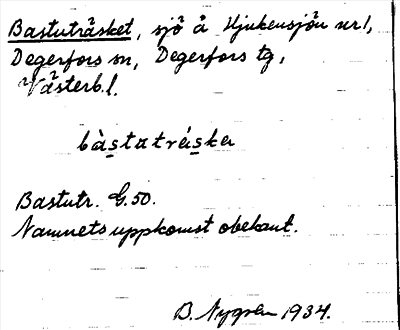 Bastuträsket, sjö å Hjukensjön nr 1,
Degerfors sn, Degerfors tg,
Västerb. l.
bàstatráskɐ
Bastutr. G.50.
Namnets uppkomst obekant.
B. Nygren 1934.